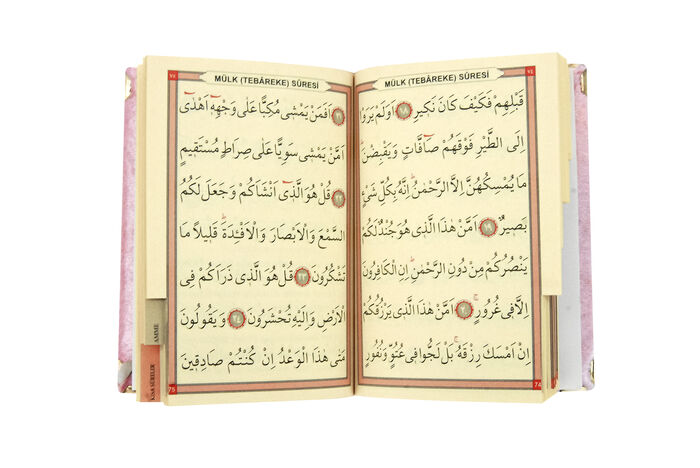 MÜLK (TEBÂREKE) SÛRESİ
قَبْلِهِمْ فَكَيْفَ كَانَ نَكِيرِ ١٨ اَوَلَمْ يَرَوْا
اِلَى الطَّيْرِ فَوْقَهُمْ صَٓافَّاتٍ وَيَقْبِضْنَ
مَا يُمْسِكُهُنَّ اِلَّا الرَّحْمٰنُ اِنَّهُ بِكُلِّ شَيْءٍ
بَصِيرٌ ١٩ اَمَّنْ هٰذَا الَّذِى هُوَ جُنْدٌ لَكُمْ
يَنْصُرُكُمْ مِنْ دُونِ الرَّحْمٰنِ اِنِ الْكَافِرُونَ
اِلَّا فِى غُرُورٍ ٢٠ اَمَّنْ هٰذَا الَّذِى يَرْزُقُكُمْ
اِنْ اَمْسَكَ رِزْقَهُ بَلْ لَجُّوا فِى عُتُوٍّ وَنُفُورٍ
74
MÜLK (TEBÂREKE) SÛRESİ
٢١ اَفَمَنْ يَمْشِى مُكِبًّا عَلٰى وَجْهِهِٓ اَهْدٰٓى
اَمَّنْ يَمْشِى سَوِيًّا عَلٰى صِرَاطٍ مُسْتَقِيمٍ
٢٢ قُلْ هُوَ الَّذِٓى اَنْشَاَكُمْ وَجَعَلَ لَكُمُ
السَّمْعَ وَالْاَبْصَارَ وَالْاَفْئِدَةَ قَلِيلًا مَا
تَشْكُرُونَ ٢٣ قُلْ هُوَ الَّذِى ذَرَاَكُمْ فِى
الْاَرْضِ وَاِلَيْهِ تُحْشَرُونَ ٢٤ وَيَقُولُونَ
مَتٰى هٰذَا الْوَعْدُ اِنْ كُنْتُمْ صَادِقِينَ
75
AMME
KISA SÛRELER